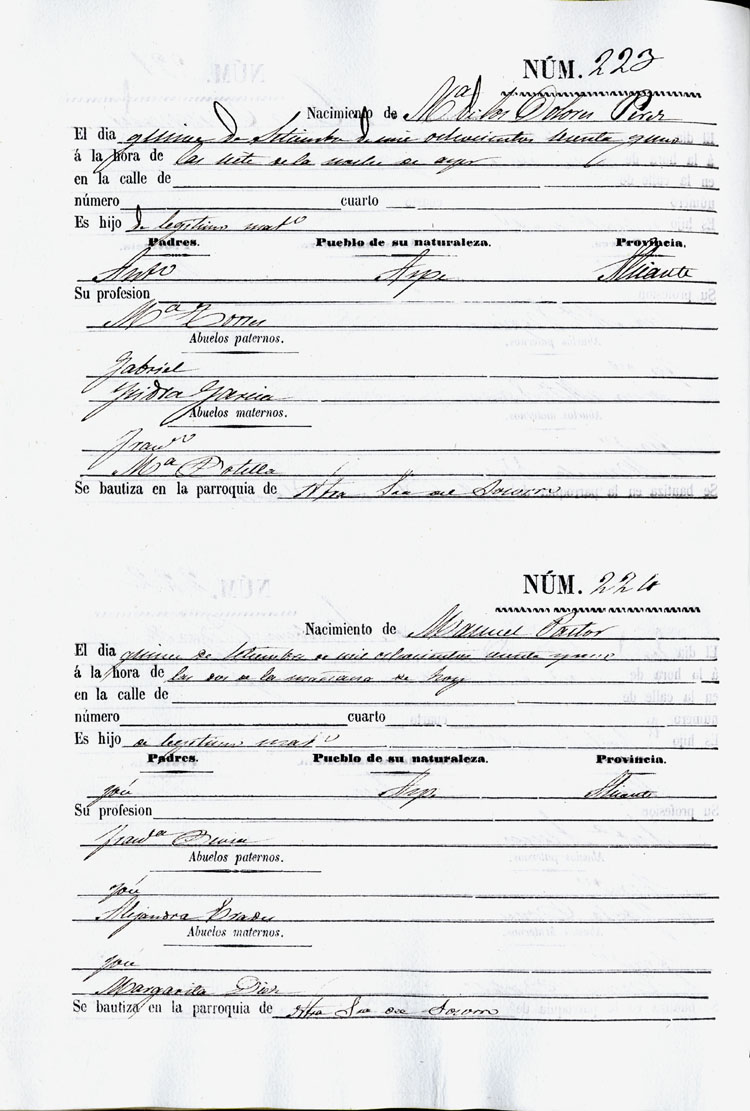 NÚM. 223
Nacimiento de Mª de los Dolores Perez
El dia quince de Setiembre de mil ochocientos y uno
á la hora de las siete de la noche de ayer
en la calle de
número cuarto
Es hijo de legitimo matº
Padres. Pueblo de su naturaleza. Provincia.
Antº Aspe Alicante
Su profesion
Mª Torres
Abuelos paternos.
Gabriel
Ysidra Garcia
Abuelos maternos.
Franº
Mª Botella
Se bautiza en la parroquia de Ntra Sra del Socorro
NÚM. 224
Nacimiento de Manuel Pastor
El dia quince de Setiembre de mil ochocientos y uno
á la hora de las dos de la mañana de hoy
en la calle de
número cuarto
Es hijo de legitimo matº
Padres. Pueblo de su naturaleza. Provincia.
José Aspe Alicante
Su profesion
Franª
Abuelos paternos.
José
Alejandra Prades
Abuelos maternos.
José
Margarita Diez
Se bautiza en la parroquia de Ntra Sra del Socorro